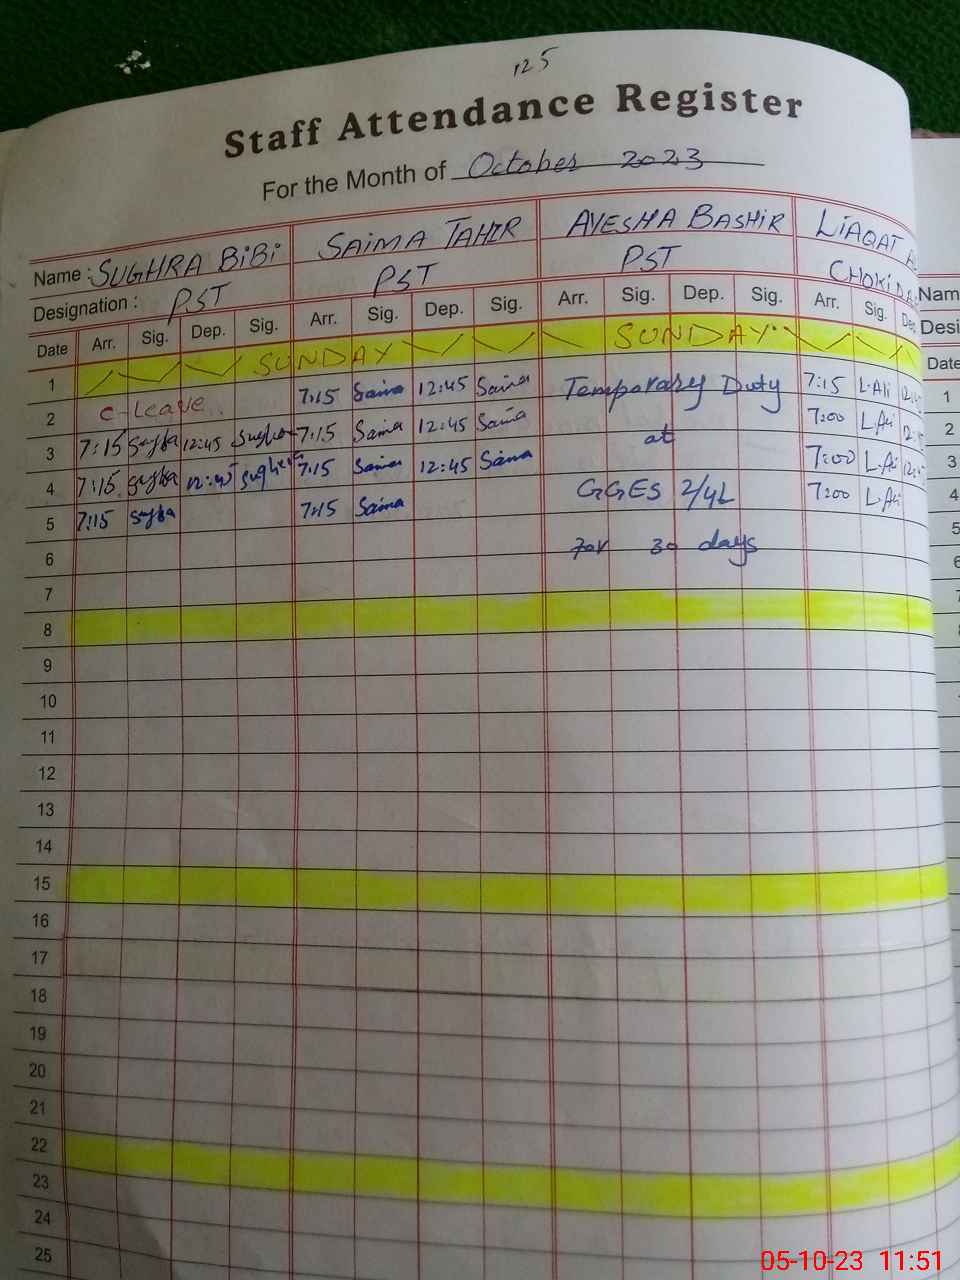 125
Staff Attendance Register
For the Month of October 2023
Name : SUGHRA BiBi SAiMA TAHIR AYESHA BASHiR LiAQAT
Designation : PST PST PST CHOKiDA Nam
Date Arr. Sig. Dep. Sig. Arr. Sig. Dep. Sig. Arr. Sig. Dep. Sig. Arr. Sig. Dep Desi
1 SUNDAY SUNDAY Date
2 C-Leave 7:15 Saima 12:45 Saima Temporary Duty 7:15 L.Ali 12:45 1
3 7:15 12:45 7:15 Saima 12:45 Saima at 7:00 L.Ali 2
4 7:15 12:45 7:15 Saima 12:45 Saima GGES 2/4L 7:00 L.Ali 3
5 7:15 7:15 Saima for 30 days 7:00 L.Ali 4
6 5
7 6
8 7
9
10
11
12
13
14
15
16
17
18
19
20
21
22
23
24
25
05-10-23 11:51